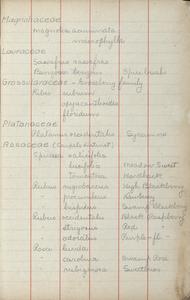 Magnoliaceae
magnolia acuminata
" macrophylla
Lauraceae
Sassafras sassafras
Benzoin benzoin Spice bush
Grossulariaceae - Gooseberry family
Ribes
" oxyacanthoides
" floridum
Platanaceae
Platanus occidentalis Sycamore
Rosaceae
Spiraea salicifolia Meadow Sweet
"
" tomentosa Hardhack
Rubus High Blackberry
" Dewberry
" hispidus Swamp Blackberry
Rubus occidentalis Black Raspberry
" strigosus Red "
" odoratus Purple-fl "
Rosa
" carolina Swamp Rose
" rubiginosa Sweetbrier